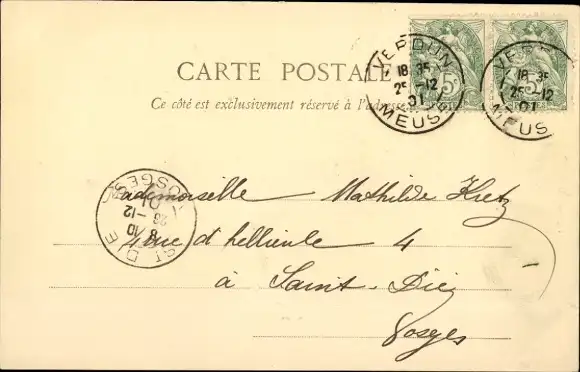 CARTE POSTALE
Ce côté est exclusivement réservé à l'adresse
VERDUN
18 35
25 -12
01
MEUSE
5c
VERDUN
18 35
25 -12
01
MEUSE
ST DIÉ
8 10
26 -12
01
VOSGES
Mademoiselle Mathilde Kretz
4 rue d'hellieule 4
à Saint-Dié
Vosges